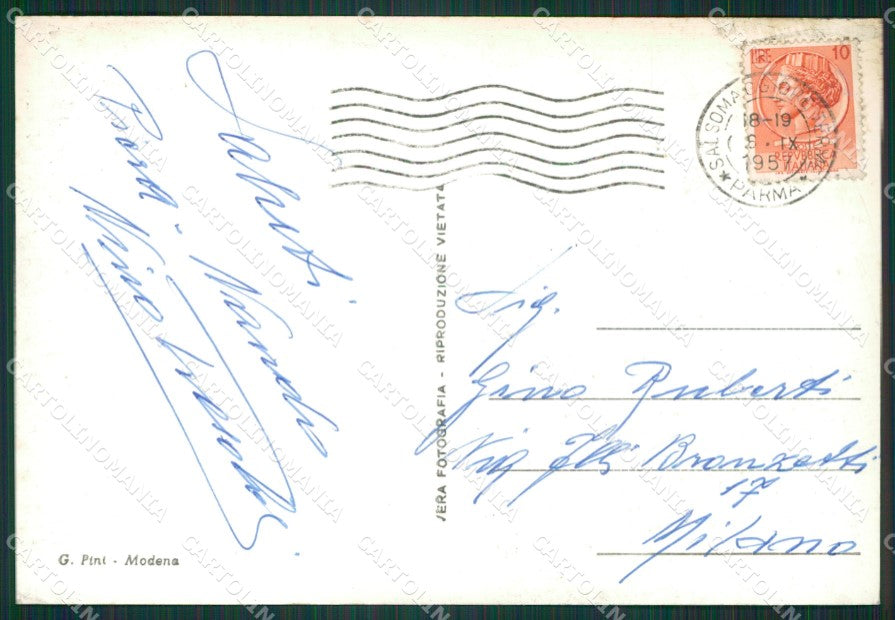 Saluti
Nando
Nino
LIRE 10
SALSOMAGGIORE TERME
18-19
8 . IX
1957
* PARMA *
VERA FOTOGRAFIA - RIPRODUZIONE VIETATA
Sig.
Gino Ruberti
Via Flli Bronzetti
17
Milano
G. Pini - Modena
CARTOLINOMANIA